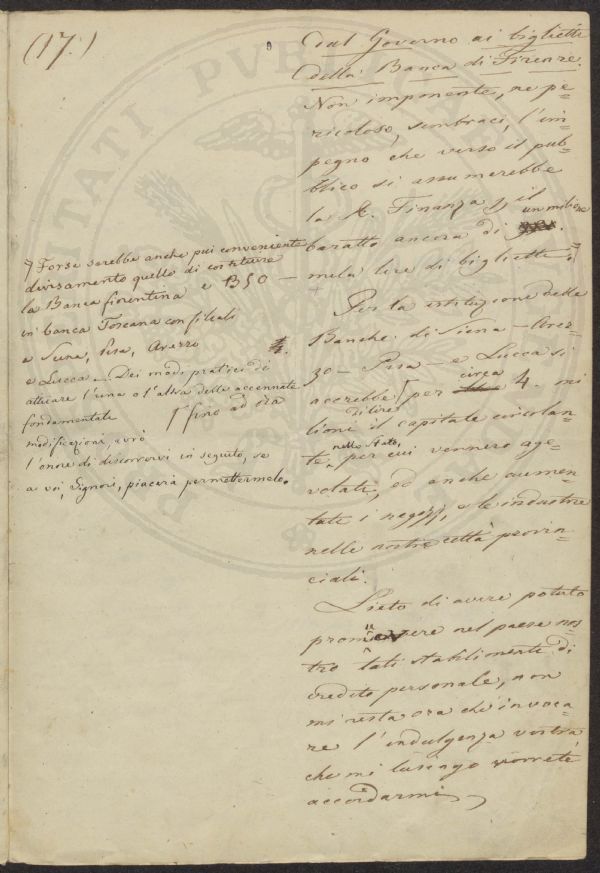 (17.)
dal Governo ai biglietti
della Banca di Firenze.
Non imponente, ne pe=
ricoloso, sembraci, l'im=
pegno che verso il pub=
blico si assumerebbe
la R. Finanza il
baratto ancora di un milione
mila lire di biglietti.
Per la istituzione delle
Banche di Siena – Arez=
zo – Pisa – e Lucca si
accrebbe per circa 4. mi
lioni di lire il capitale circolan=
te nello Stato, per cui vennero age=
volati, ed anche aumen=
tati i negozj, e le industrie
nelle nostre città provin=
ciali.
Lieto di avere potuto
promuovere nel paese nos=
tro tali stabilimenti di
credito personale, non
mi resta ora che invoca=
re l'indulgenza vostra
che mi lusingo vorrete
accordarmi
Forse sarebbe anche più conveniente
divisamento quello di costituire
la Banca fiorentina e
in banca Toscana con filiali
a Siena, Pisa, Arezzo
e Lucca – Dei modi pratici di
attuare l'una o l'altra delle accennate
fondamentali fino ad ora
modificazioni, avrò
l'onore di discorrervi in seguito, se
a voi, Signori, piacerà permettermelo.
PUBLICAE